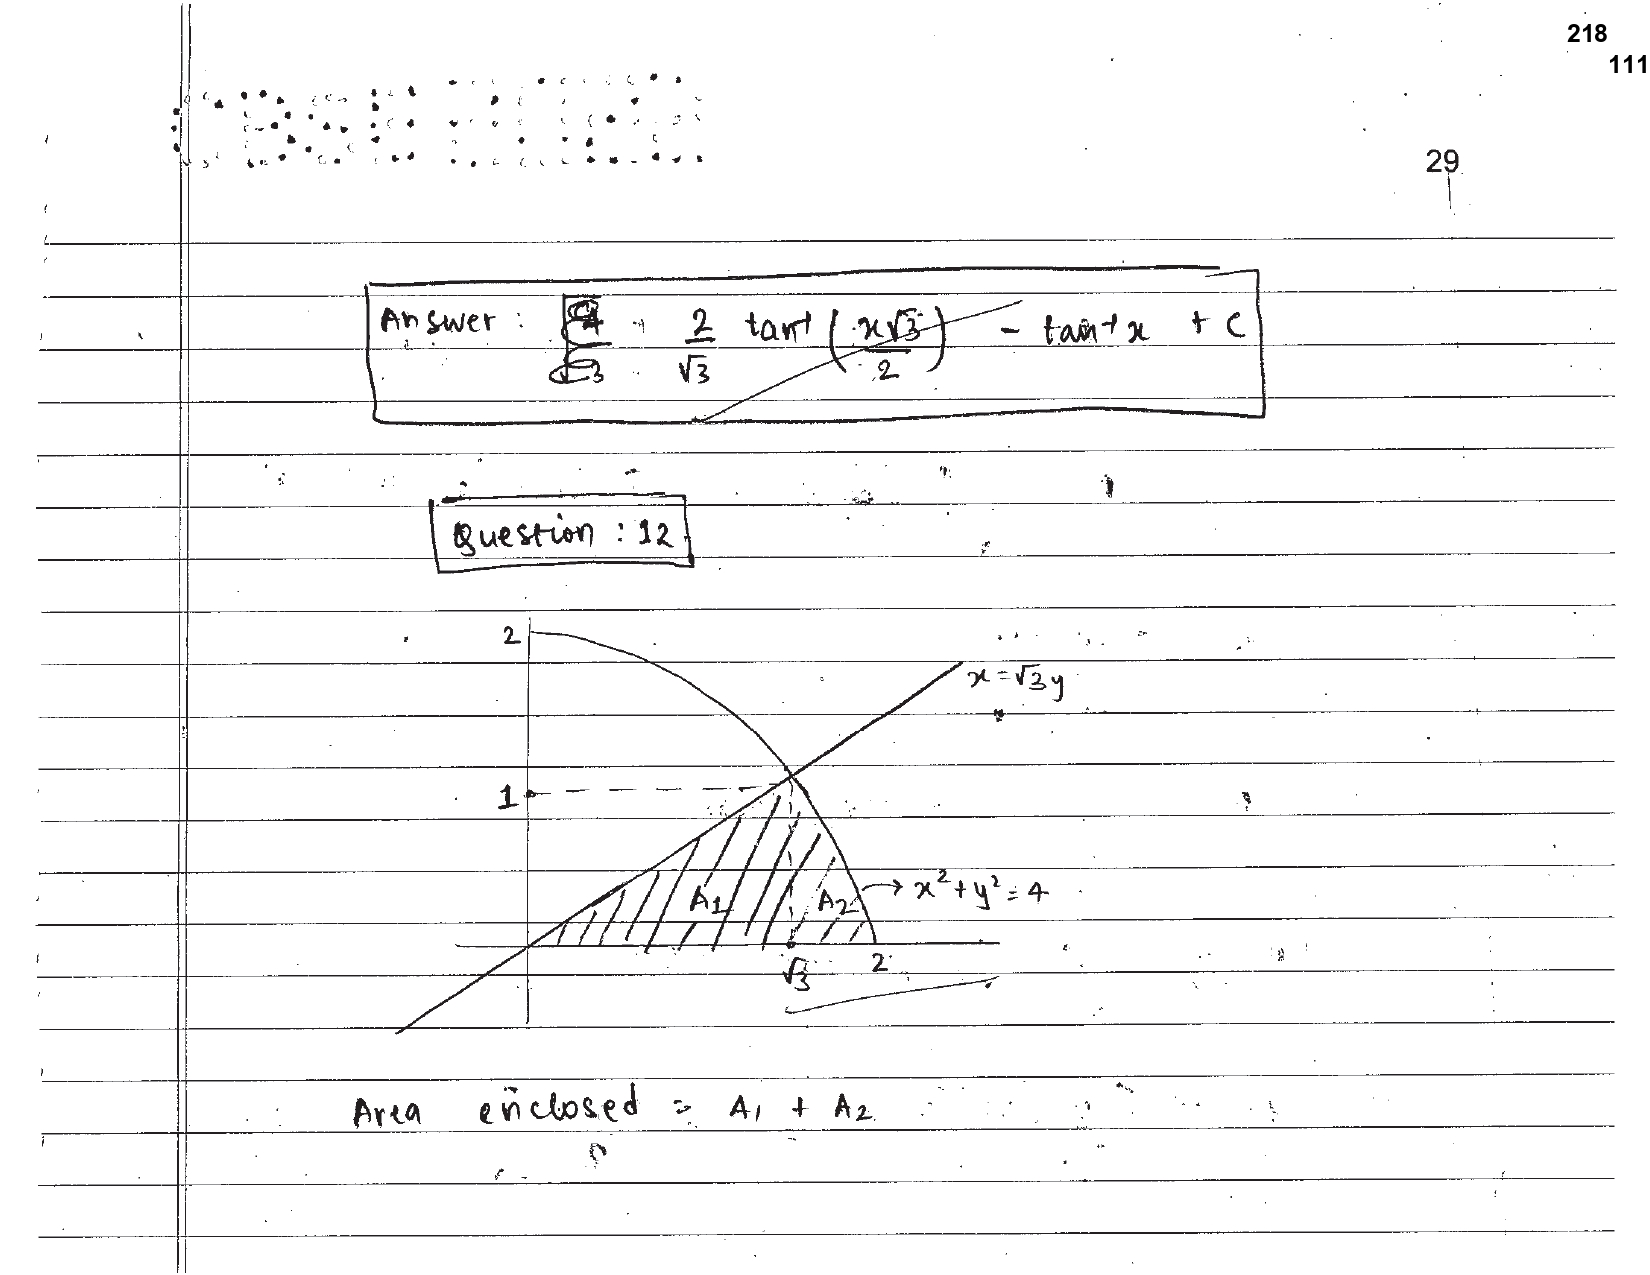 218
111
29
Answer : 2/√3 tan⁻¹ (x√3/2) - tan⁻¹x + C
Question : 12
2
x=√3y
1
A1
A2
→ x²+y²=4
√3
2
Area enclosed = A1 + A2